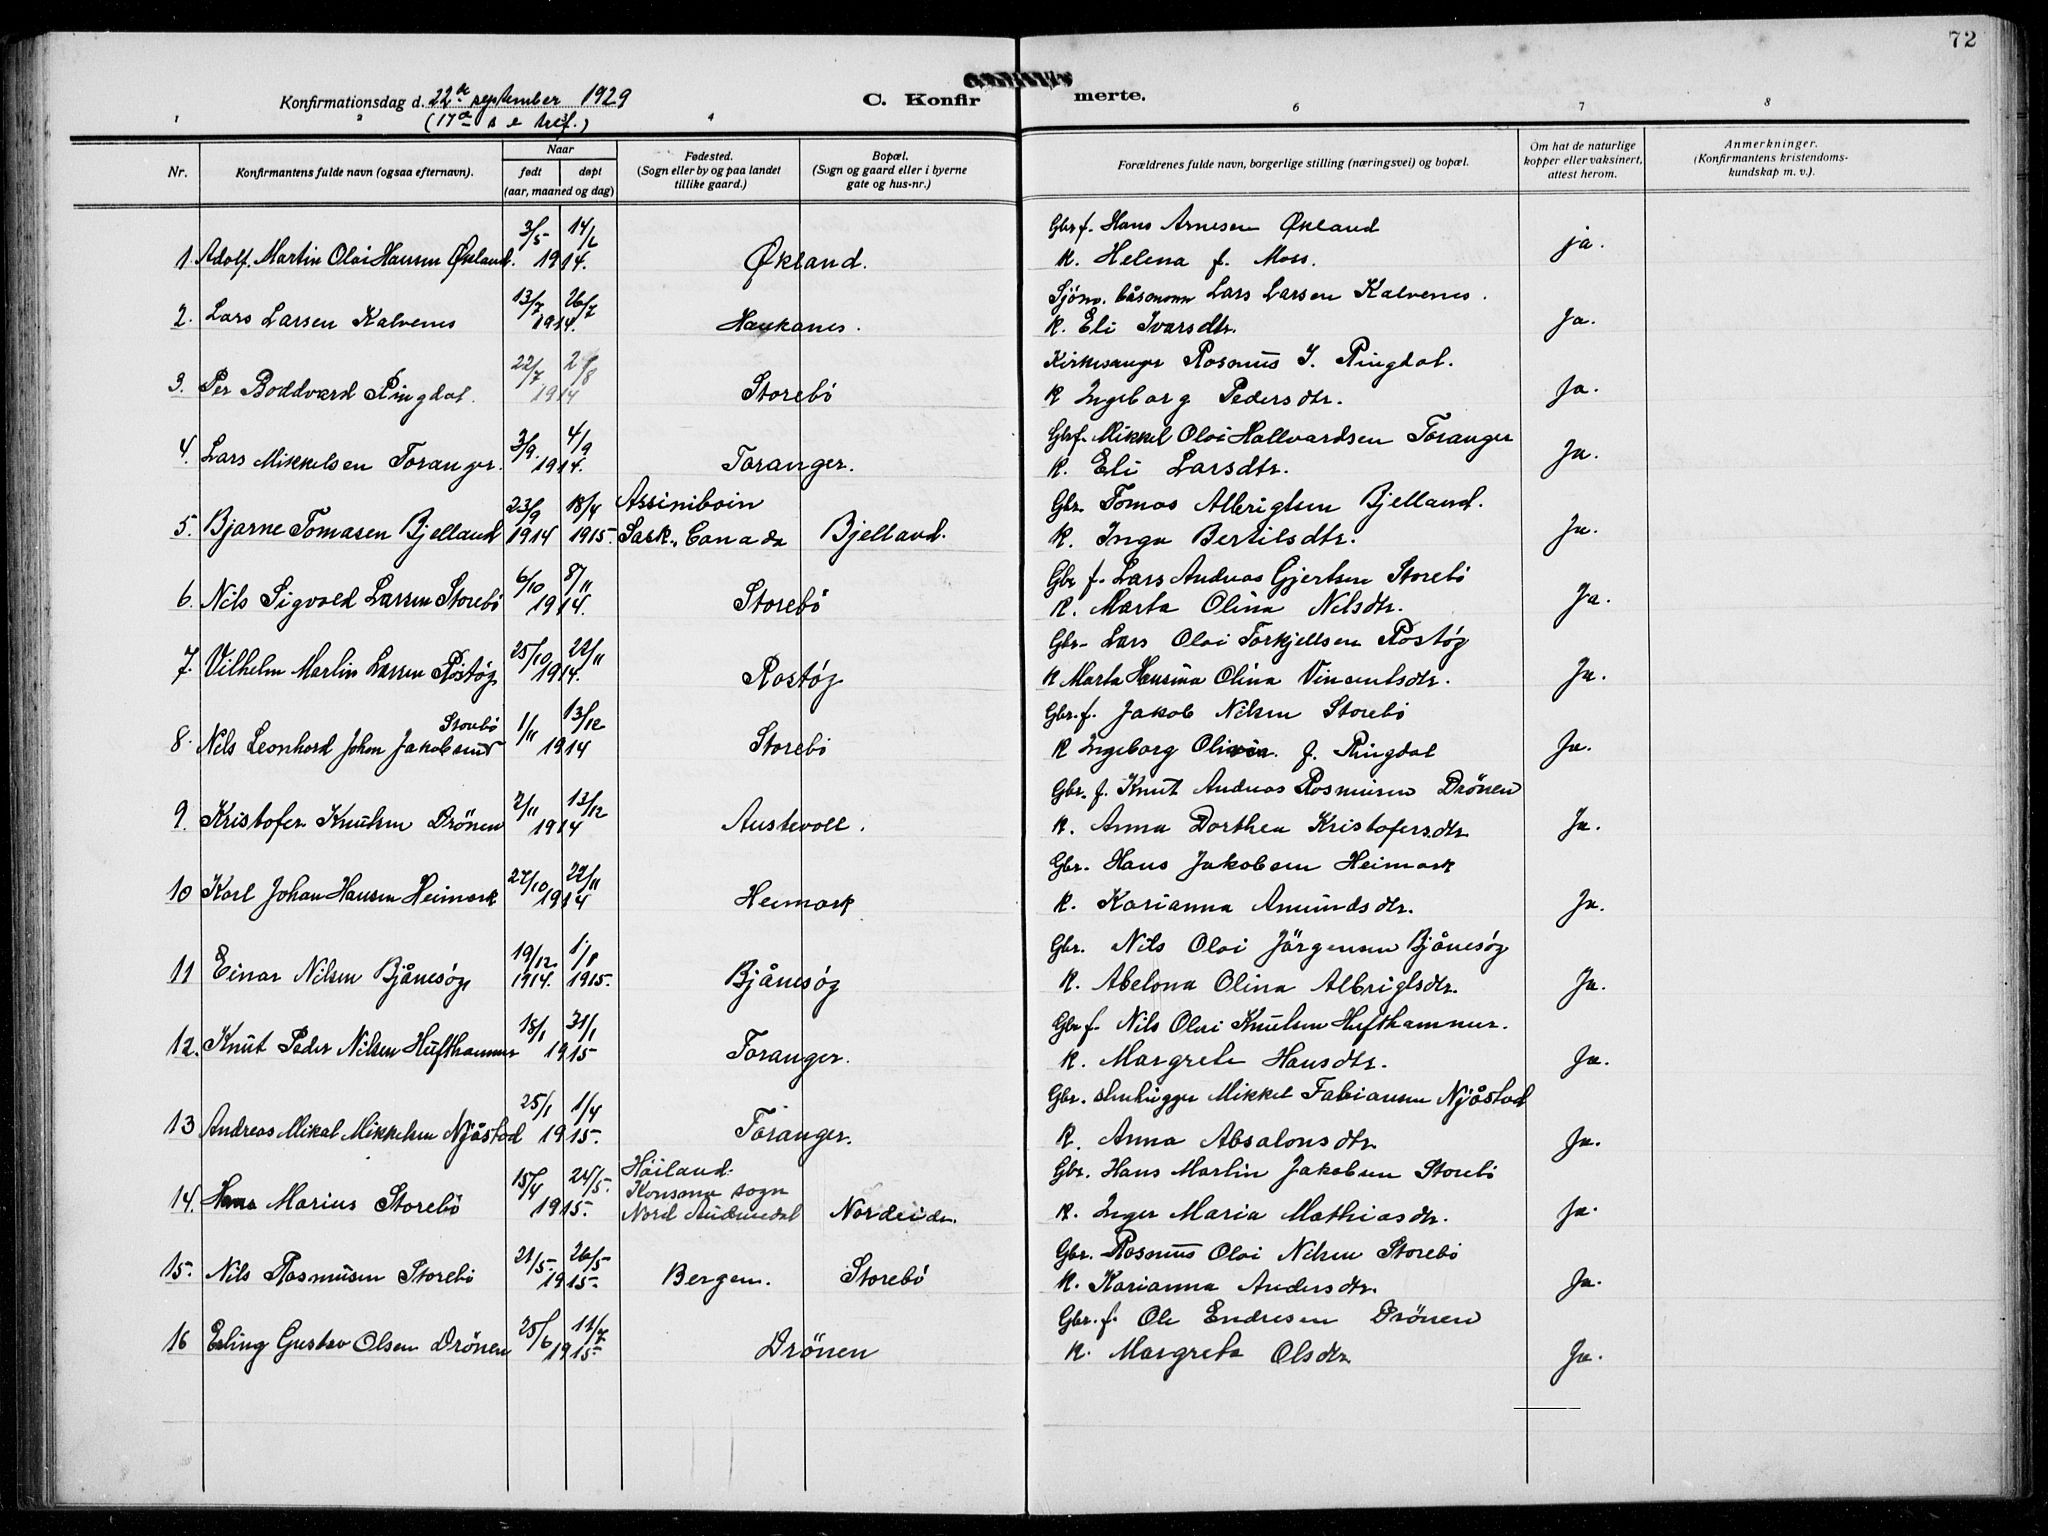 72
Konfirmationsdag d. 22de september 1929
(17de s e tref.)
C. Konfirmerte.
1 2 3 4 6 7 8
Nr.
Konfirmantens fulde navn (ogsaa efternavn).
Naar
født døpt
(aar, maaned og dag)
Fødested.
(Sogn eller by og paa landet
tillike gaard.)
Bopæl.
(Sogn og gaard eller i byerne
gate og hus-nr.)
Forældrenes fulde navn, borgerlige stilling (næringsvei) og bopæl.
Om hat de naturlige
kopper eller vaksinert,
attest herom.
Anmerkninger.
(Konfirmantens kristendoms-
kundskap m. v.).
3/5 14/6 Gbr f. Hans Arnesen Økland
1. Adolf Martin Olai Hansen Økland. 1914. Økland. k. Helena f. Moss. ja.
13/7 26/7 Sjøm. båsmann Lars Larsen Kalvenes.
2. Lars Larsen Kalvenes 1914. Haukanes. k. Eli Ivarsdtr. Ja.
22/7 2/8 Kirkesanger Rasmus J. Ringdal.
3. Per Boddvard Ringdal. 1914 Storebö k Ingeborg Pedersdtr. Ja.
3/9. 4/9 Gbrf. Mikkel Olai Hallvardsen Toranger
4. Lars Mikkelsen Toranger. 1914. Toranger. k. Eli Larsdtr. Ja.
23/9 18/4 Assiniboin Gbr. Tomas Albrigtsen Bjelland.
5. Bjarne Tomasen Bjelland 1914 1915. Sask., Canada Bjelland. k. Inga Bertilsdtr. Ja.
6/10 8/11 Gbr f. Lars Andreas Gjertsen Storebö
6. Nils Sigvald Larsen Storebö 1914. Storebö k. Marta Olina Nilsdtr. Ja.
25/10 22/11 Gbr. Lars Olai Torkjellsen Rostøy
7. Vilhelm Martin Larsen Rostøy 1914. Rostøy k Marta Hansina Olina Vincentsdtr. Ja.
Storebö 1/11 13/12 Gbr. f. Jakob Nilsen Storebö
8. Nils Leonhard Johan Jakobsen 1914 Storebö k Ingeborg Olivia. f. Ringdal Ja.
2/11 13/12 Gbr. f. Knut Andreas Rasmusen Drönen
9. Kristofer Knutsen Drönen 1914 Austevoll. k. Anna Dorthea Kristofersdtr. Ja.
27/10 22/11 Gbr. Hans Jakobsen Heimark
10 Karl Johan Hansen Heimark 1914 Heimark k. Karianna Amundsdtr. Ja.
19/12. 1/1 Gbr. Nils Olai Jörgensen Bjånesøy
11 Einar Nilsen Bjånesøy 1914. 1915. Bjånesøy k. Abelona Olina Albrigtsdtr. Ja.
18/1 31/1 Gbr f. Nils Olai Knutsen Hufthammer.
12. Knut Peder Nilsen Hufthammer 1915 Toranger. k. Margrete Hansdtr. Ja.
25/1 1/4 Gbr. stenhugger Mikkel Fabiansen Njåstad
13 Andreas Mikal Mikkelsen Njåstad 1915. Toranger. k. Anna Absalonsdtr. Ja.
15/4 24/5. Höiland Gbr. Hans Martin Jakobsen Storebö
Konsmo sogn
14. Hans Marius Storebö 1915. Nord Audnedal Nordeide. k. Inger Maria Mathiasdtr. Ja.
21/5. 26/5 Gbr. Rasmus Olai Nilsen Storebö
15. Nils Rasmusen Storebö 1915. Bergen. Storebö k. Karianna Andersdtr. Ja.
25/6 11/7 Gbr. f. Ole Endresen Drönen
16 Erling Gustav Olsen Drönen 1915 Drönen k. Margreta Olsdtr. Ja.